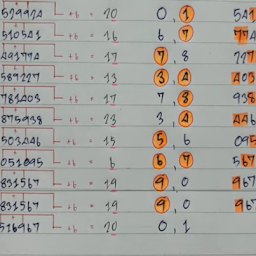 529924 +6 = 20 0,1 541
510541 +6 = 16 6,7 774
491774 +6 = 17 7,8 227
589227 +6 = 13 3,4 403
781403 +6 = 17 7,8 938
875938 +6 = 23 3,4 446
503446 +6 = 15 5,6 095
051095 +6 = 6 6,7 567
831567 +6 = 19 9,0 967
831567 +6 = 19 9,0 967
516967 +6 = 20 0,1